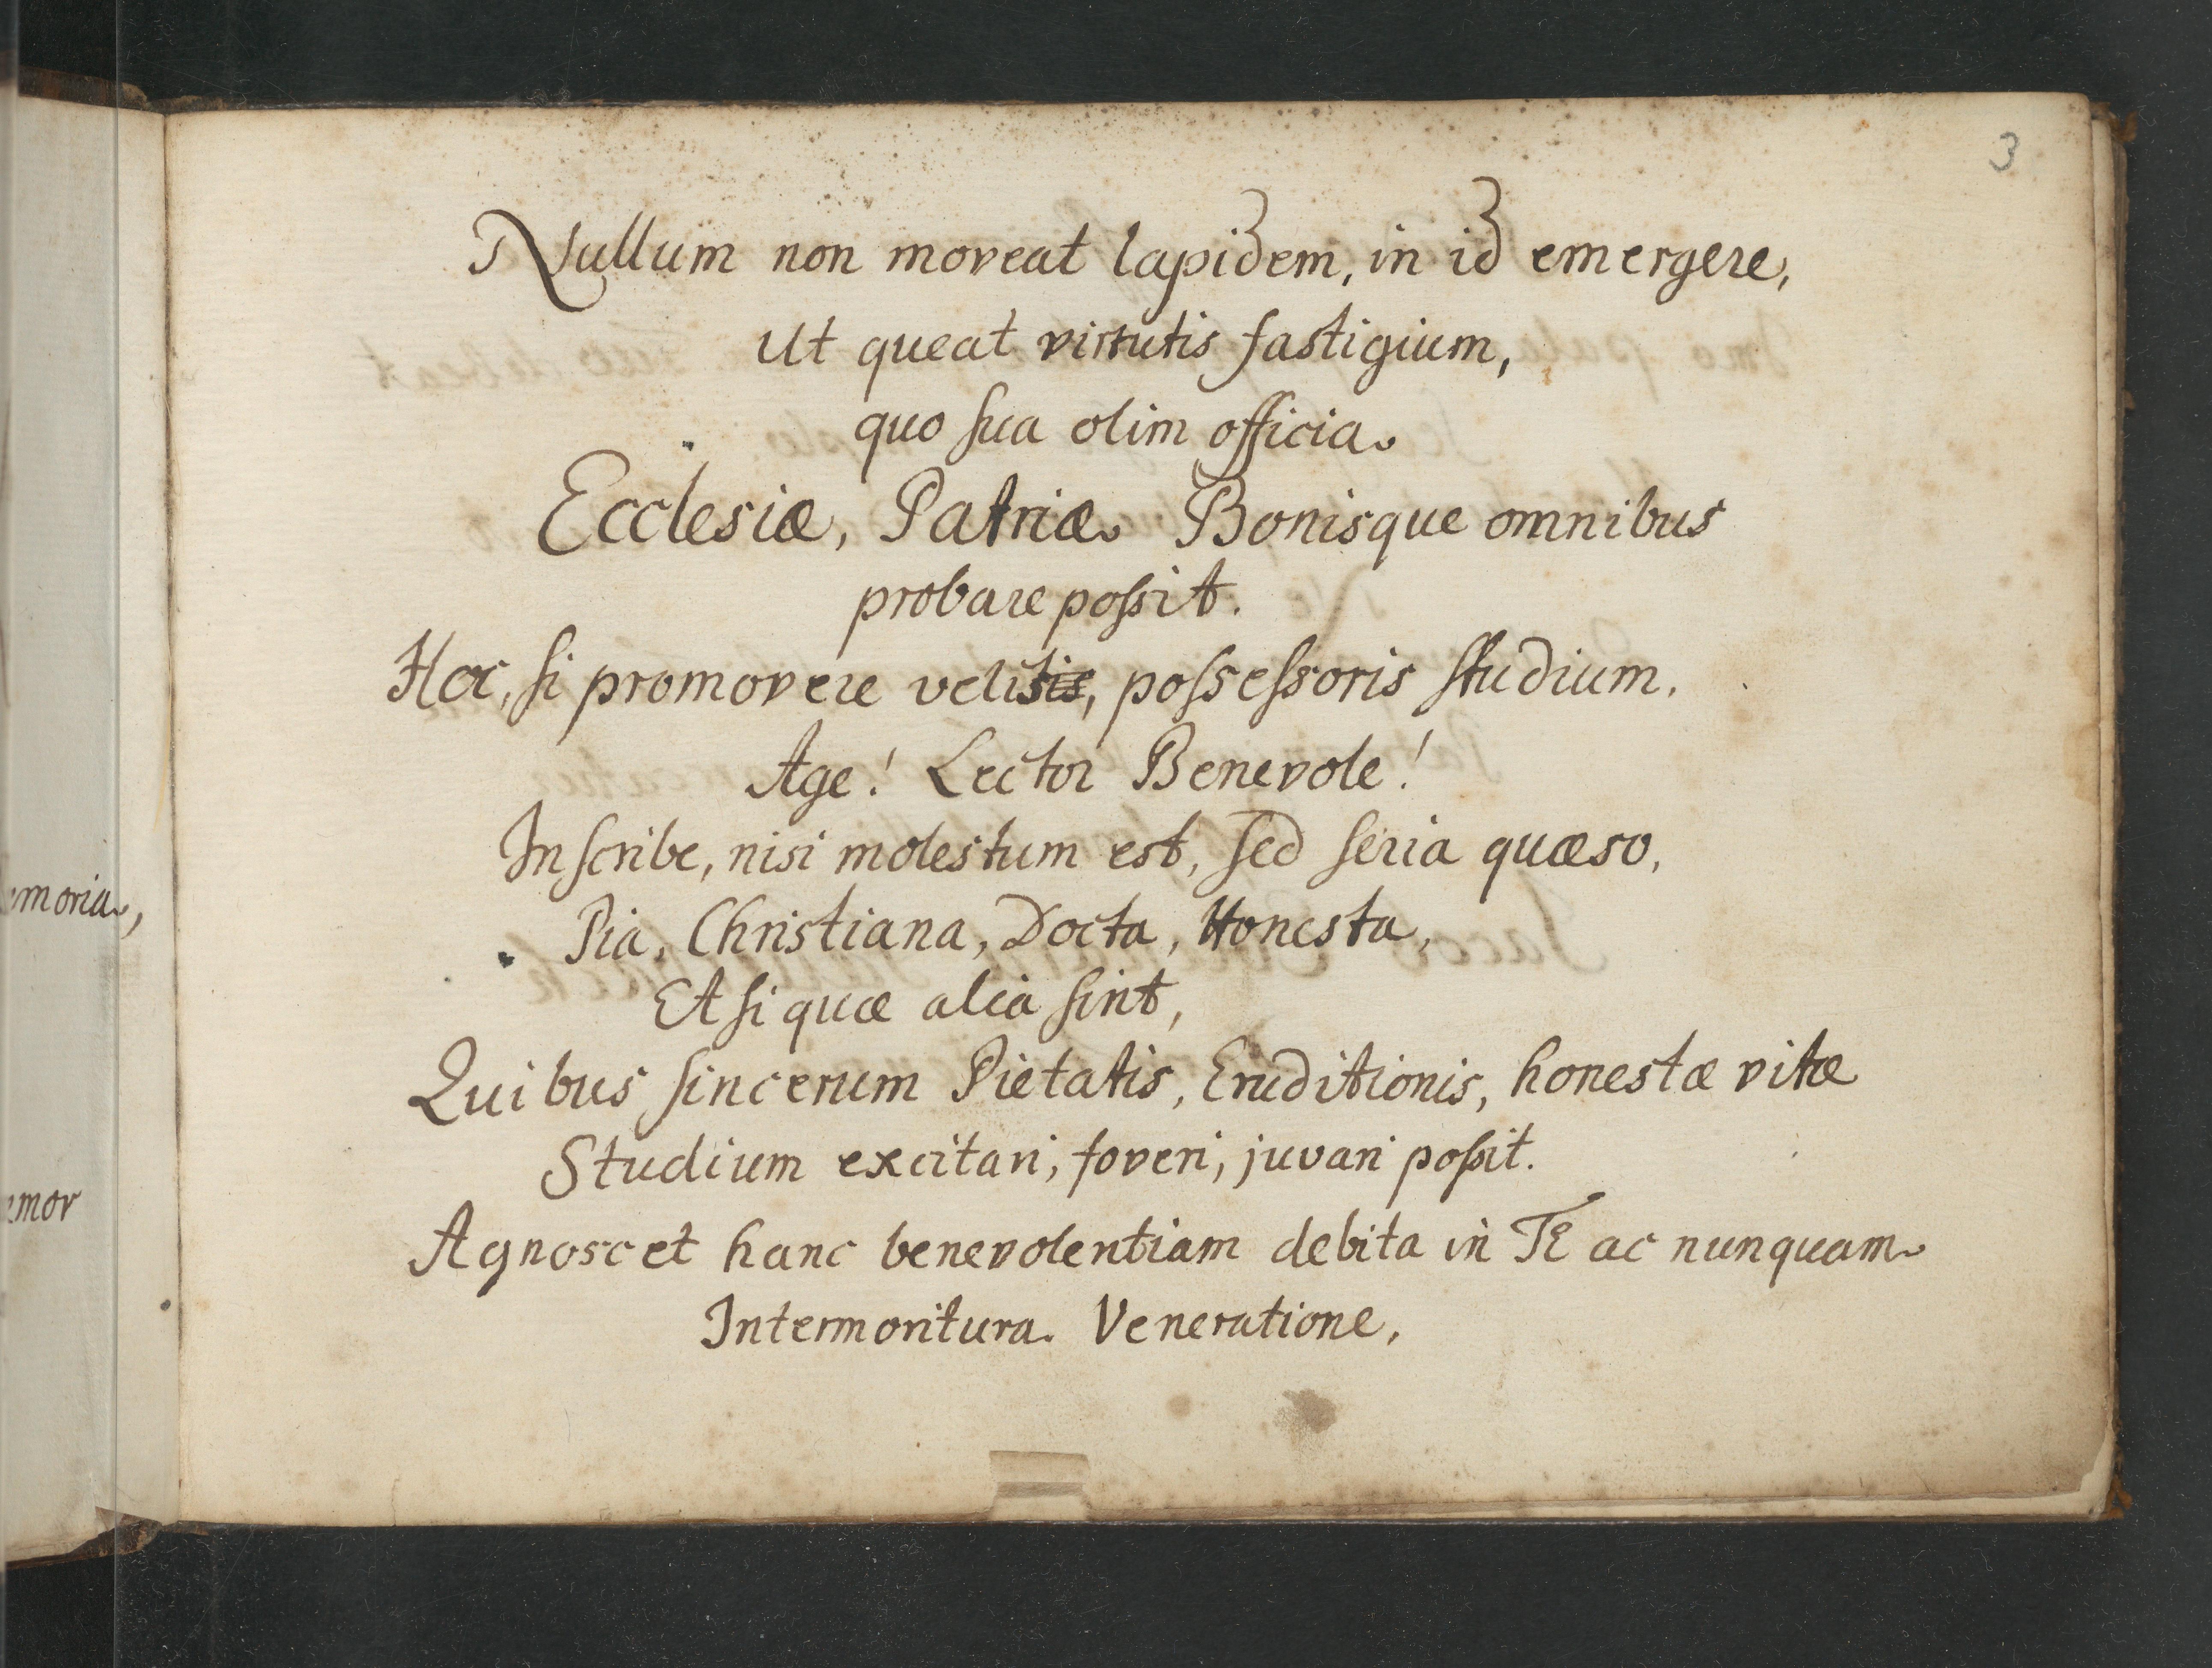 3
Nullum non moveat lapidem, in id emergere,
Ut queat virtutis fastigium,
quo sua olim officia
Ecclesiæ, Patriæ Bonisque omnibus
probare possit.
Hoc, si promovere velis, possessoris studium,
Age! Lector Benevole!
Inscribe, nisi molestum est, sed seria quæso,
Pia, Christiana, Docta, Honesta,
Et si quæ alia sint,
Quibus sincerum Pietatis, Eruditionis, honestæ vitæ
Studium excitari, foveri, juvari possit.
Agnoscet hanc benevolentiam debita in Te ac nunquam
Intermoritura Veneratione,
emoria,
emor